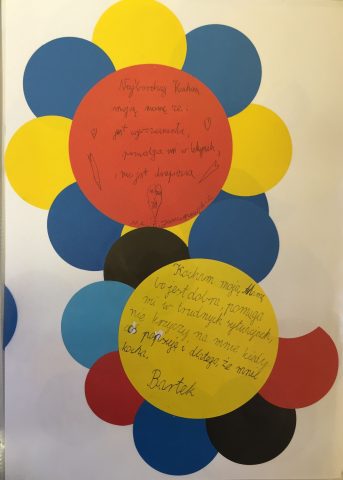 Najbardziej Kocham
moją mamę że.
jest
pomaga mi w
i nie jest
Kocham moją Mamę
bo jest dobra, pomaga
mi w trudnych sytuacjach,
nie krzyczy na mnie kiedy
coś popsuję i dlatego, że mnie
kocha.
Bartek